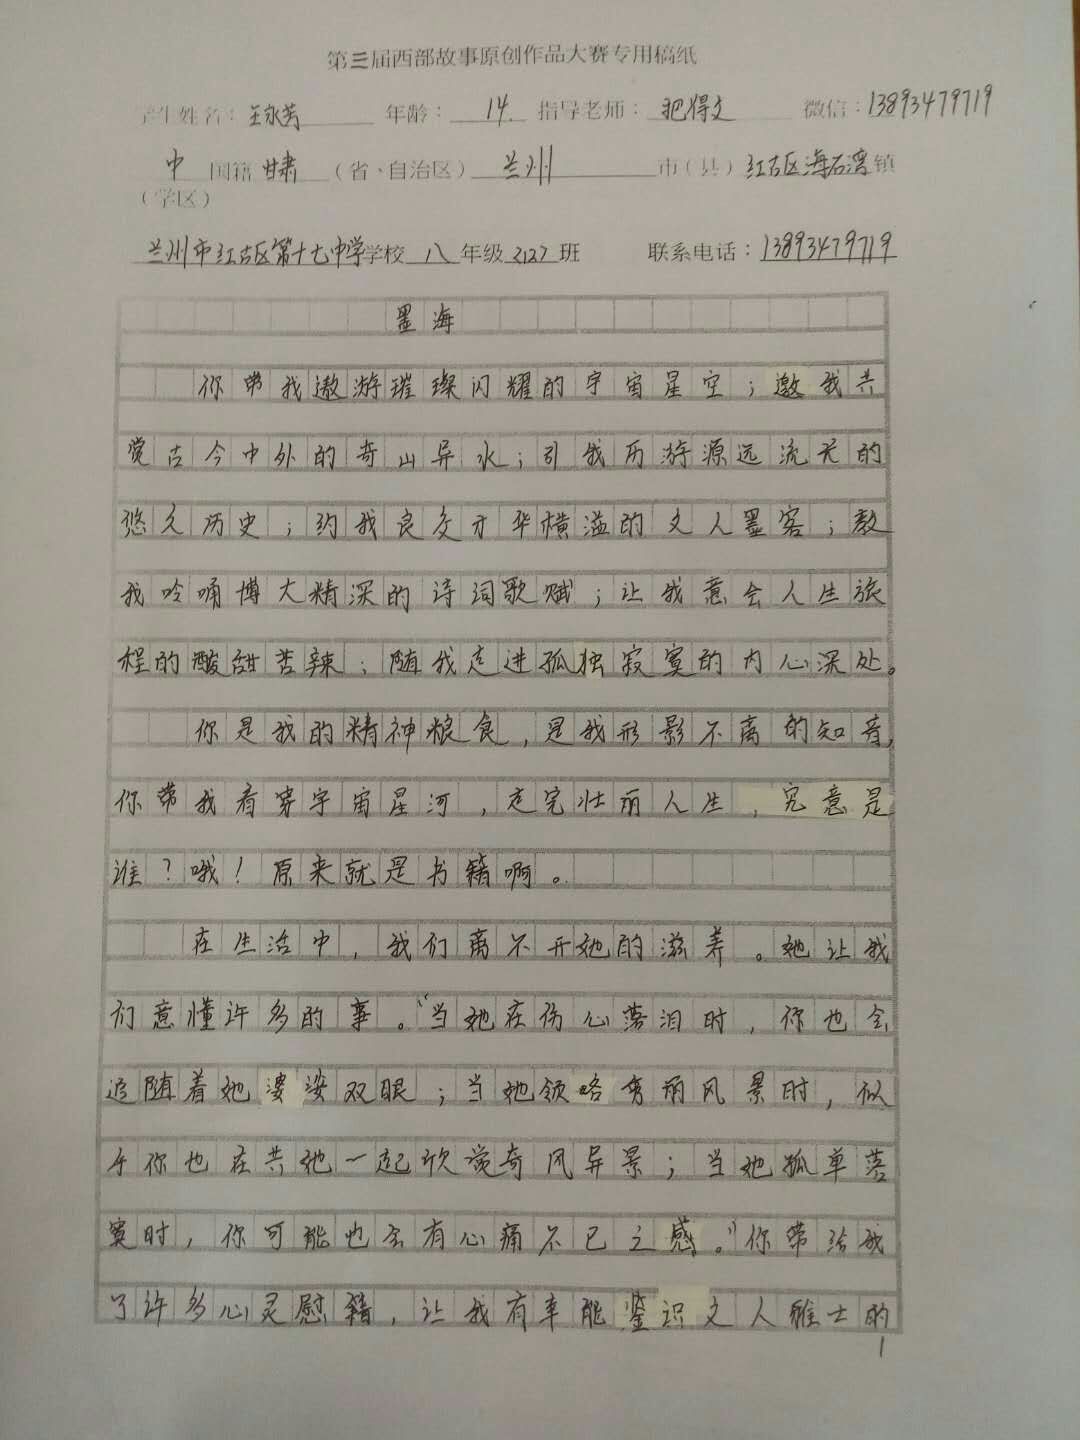 第三届西部故事原创作品大赛专用稿纸
学生姓名：王永芳 年龄：14 指导老师：把得文 微信：13893479719
中 国籍 甘肃（省、自治区）兰州 市（县）红古区海石湾镇
（学区）
兰州市红古区第十七中学学校 八 年级 2127 班 联系电话：13893479719
墨海
你带我遨游璀璨闪耀的宇宙星空；邀我共
觉古今中外的奇山异水；引我历游源远流长的
悠久历史；约我良交才华横溢的文人墨客；教
我吟诵博大精深的诗词歌赋；让我意会人生旅
程的酸甜苦辣；随我走进孤独寂寞的内心深处。
你是我的精神粮食，是我形影不离的知音，
你带我看穿宇宙星河，走完壮丽人生，究意是
谁？哦！原来就是书籍啊。
在生活中，我们离不开她的滋养。她让我
们意懂许多的事。“当她在伤心落泪时，你也会
追随着她婆娑双眼；当她领略秀丽风景时，似
乎你也在共她一起欣觉奇风异景；当她孤单落
寞时，你可能也会有心痛不已之感。”你带给我
了许多心灵慰籍，让我有幸能鉴识文人雅士的
1